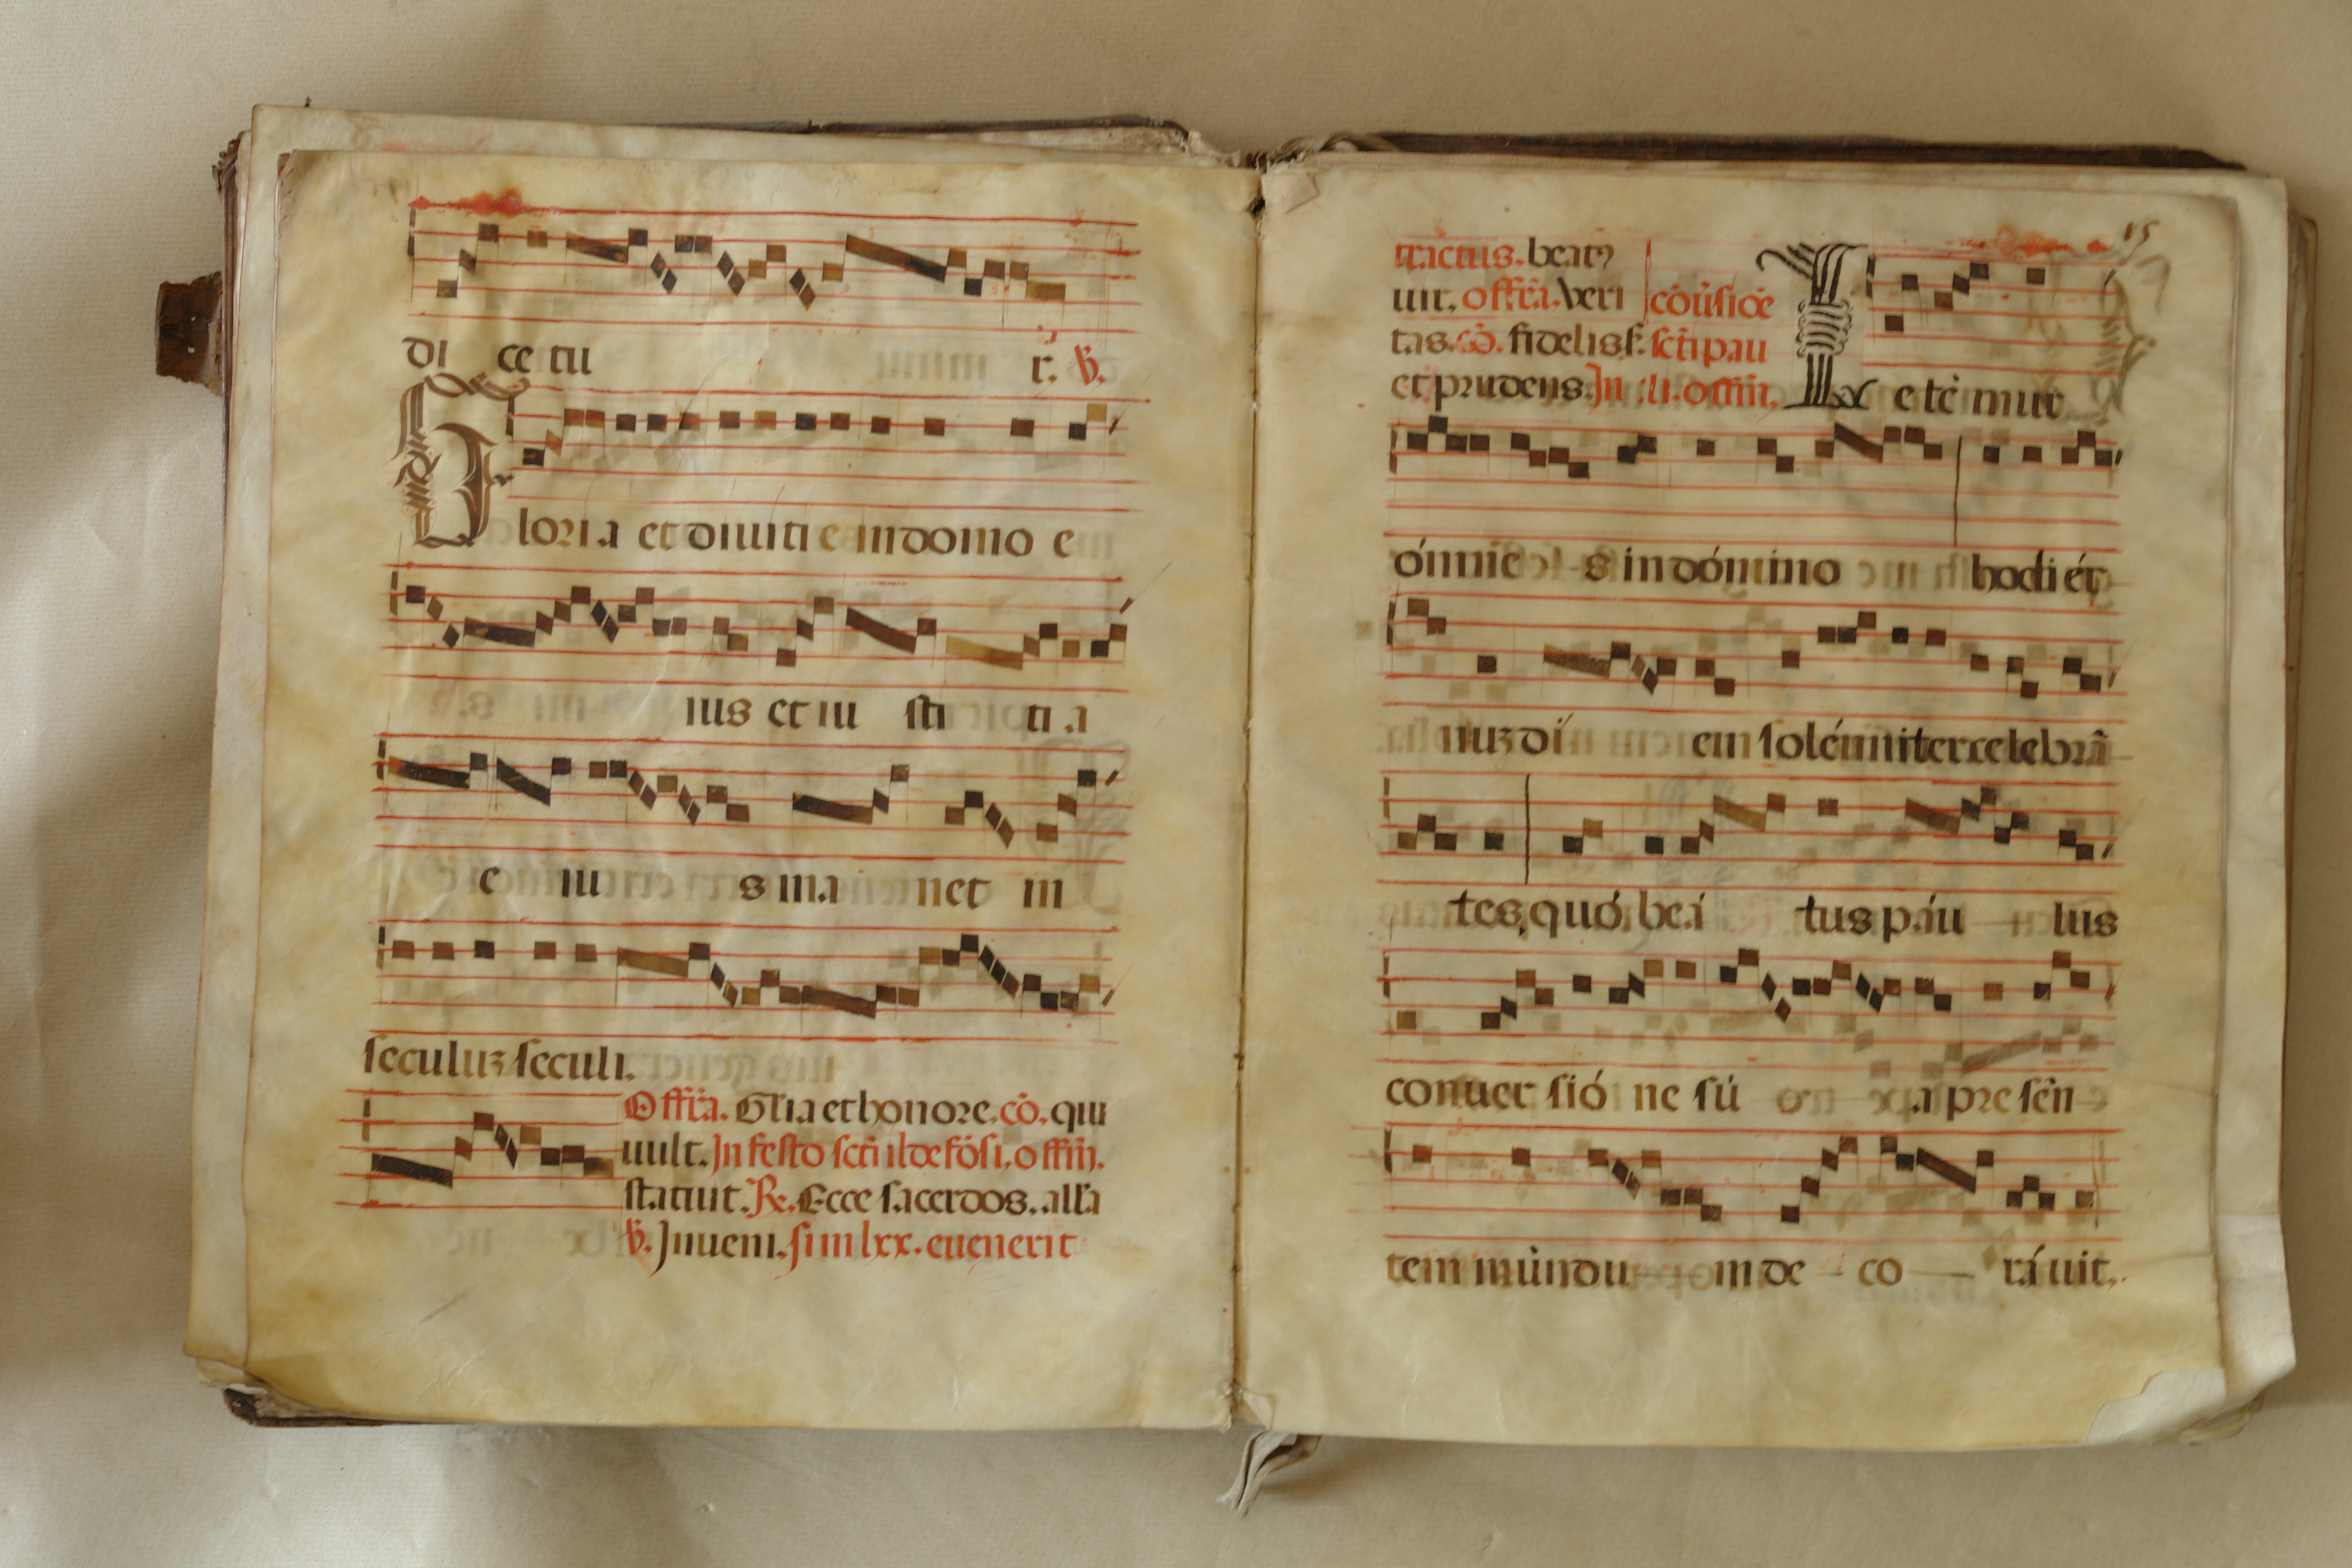 di ce tu r. ℣.
Gloria et diuiti e in domo e
ius et iu sti ti a
e iu s ma net in
seculuꝫ seculi.
Offr̄a. Gl̄ia et honore. cō. qui
uult. In festo scti ildefōsi. offm̄.
statuit. ℟. Ecce sacerdos. all̄a
℣. Inueni. si in lxx. euenerit
15
tractus. beatꝰ
uir. offr̄a. veri
tas. cō. fidelis ẜ.
et prudens. In
cōūsiōe
scti pau
li. offm̄.
Lx e tē mur
ómne s in dómino hodi ér
nuꝫ dí em solémniter celebrā
tes, quó, beá tus páu lus
conuer sió ne sú a pre sén
tem múndu m de co rá uit.